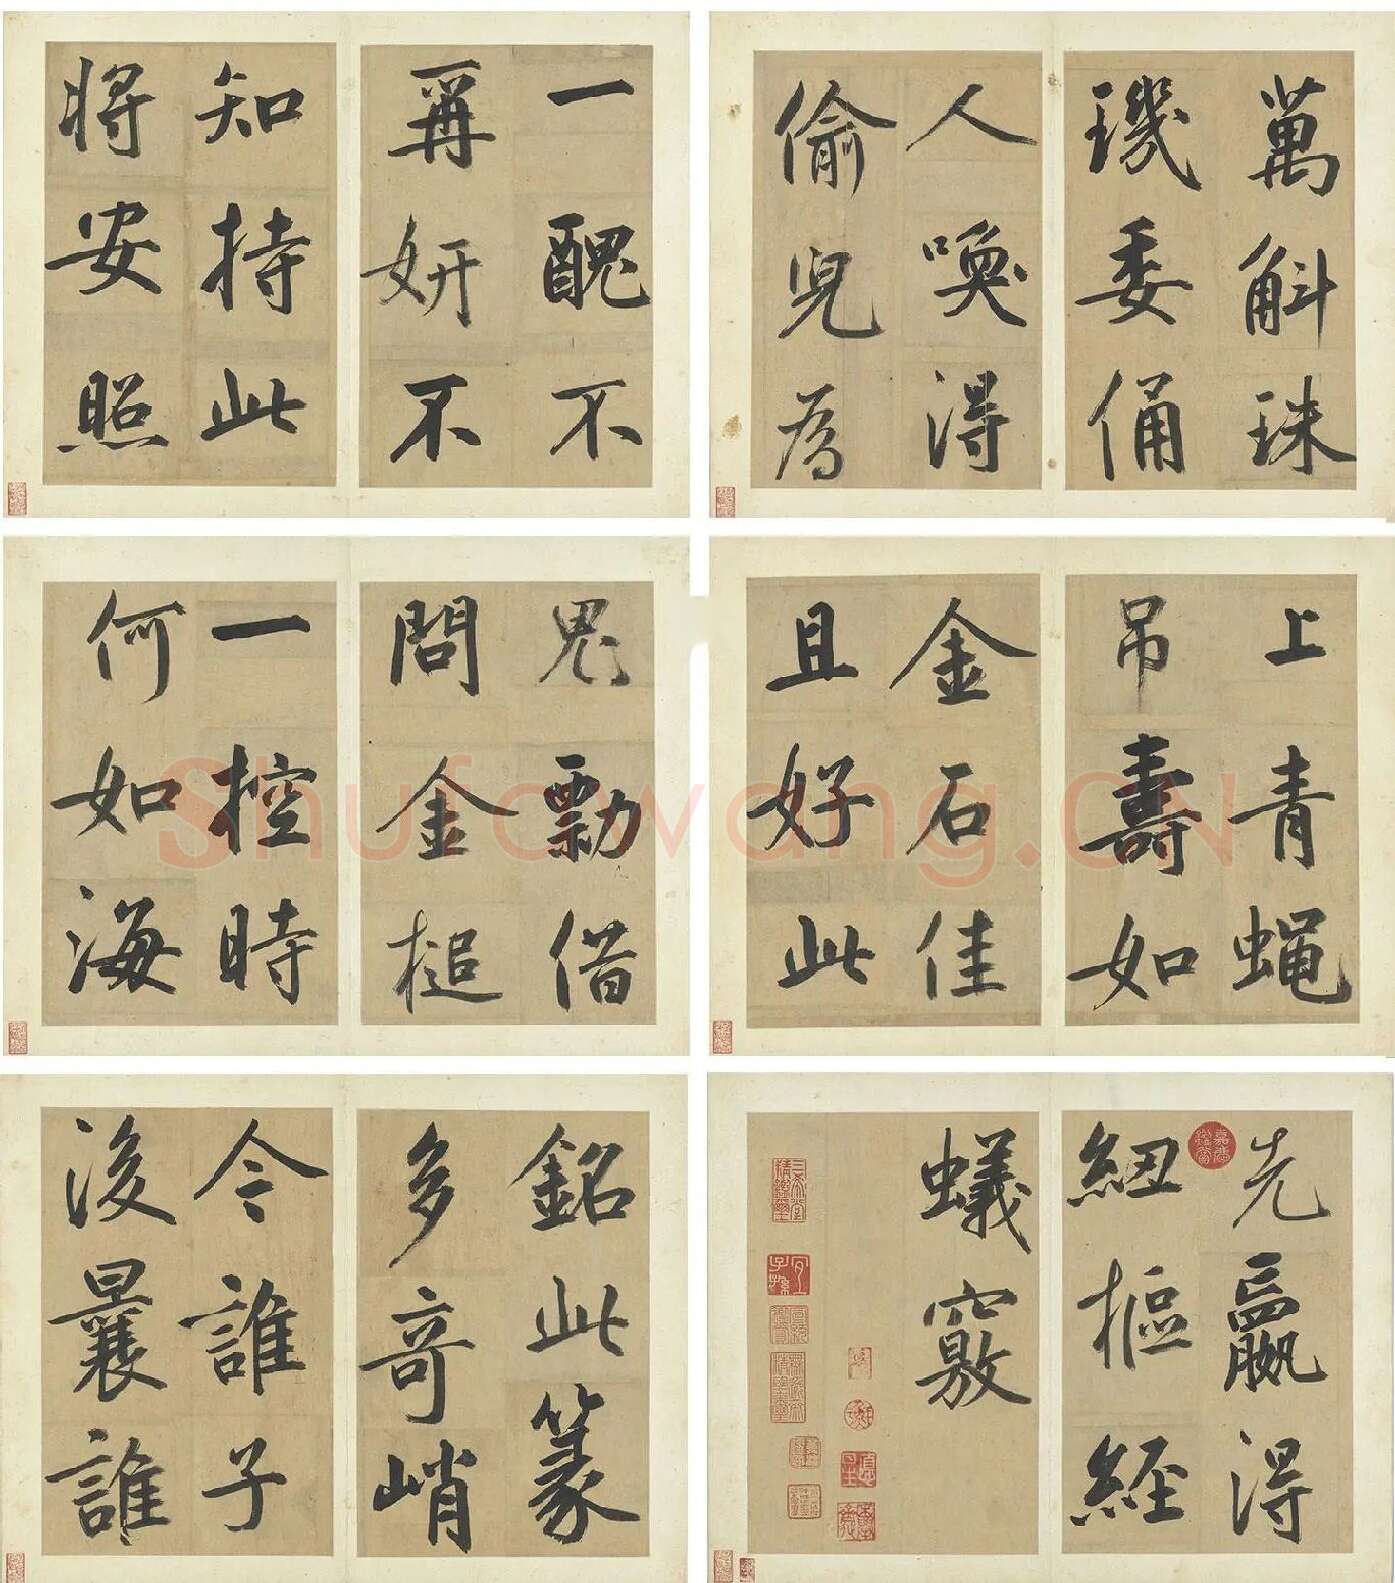 一醜不
再妍不
知持此
將安照
萬斛珠
璣委俑
人喚得
偷兒為
鬼勡借
問金槌
一控時
何如海
上青蠅
吊壽如
金石佳
且好此
銘此篆
多奇峭
今誰子
後曩誰
先贏得
紐樞經
蟻竅
三希堂精鑑璽
宜子孫
Shufawang.CN